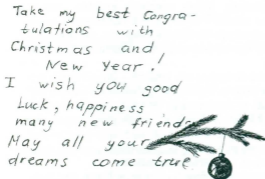 Take my best Congra-
tulations with
Christmas and
New Year!
I wish you good
Luck, happiness
many new friends
May all your
dreams come true